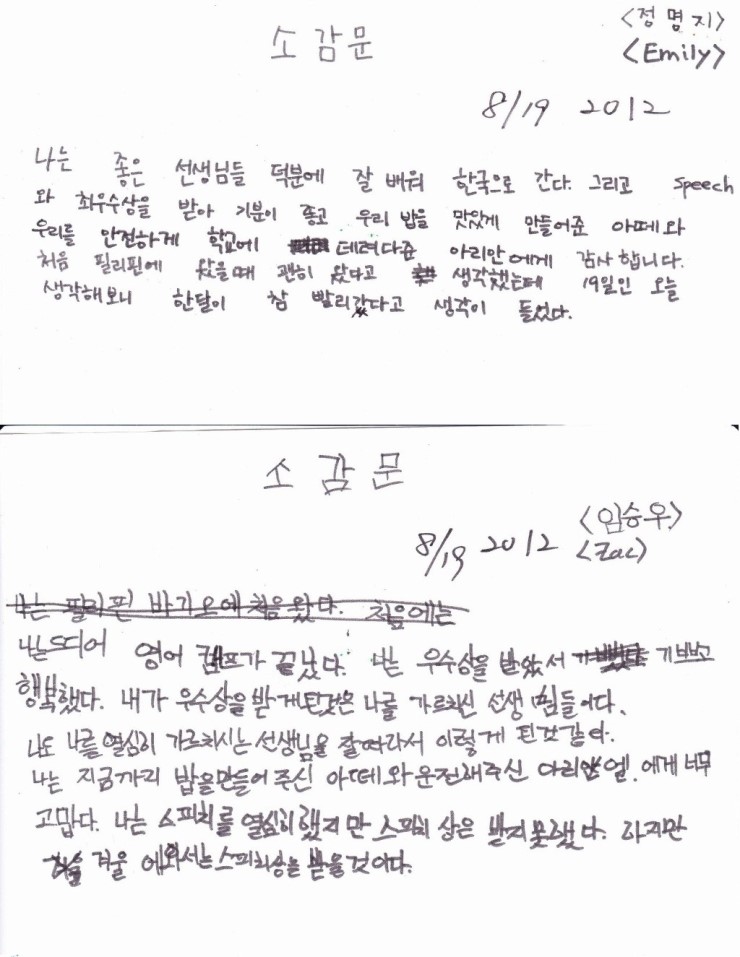 <정명지>
소감문
<Emily>
8/19 2012
나는 좋은 선생님들 덕분에 잘 배워 한국으로 간다. 그리고 speech
와 최우수상을 받아 기분이 좋고 우리 밥을 맛있게 만들어준 아떼와
우리를 안전하게 학교에 데려다준 아리안에게 감사합니다.
처음 필리핀에 왔을때 괜히 왔다고 생각했는데 19일인 오늘
생각해보니 한달이 참 빨리갔다고 생각이 들었다.
소감문
<임승우>
8/19 2012 <Zac>
나는 필리핀 바기오에 처음왔다. 처음에는
나는드디어 영어 캠프가 끝났다. 나는 우수상을 받았서 기쁘고
행복했다. 내가 우수상을 받게된것은 나를 가르치신 선생님들이다.
나도 나를열심히 가르치시는 선생님을 잘따라서 이렇게 된것같다.
나는 지금까지 밥을만들어주신 아떼와운전해주신 아리엘.에게너무
고맙다. 나는 스피치를 열심히했지만 스피치 상은 받지못했다. 하지만
겨울에와서는스피치상을 받을것이다.